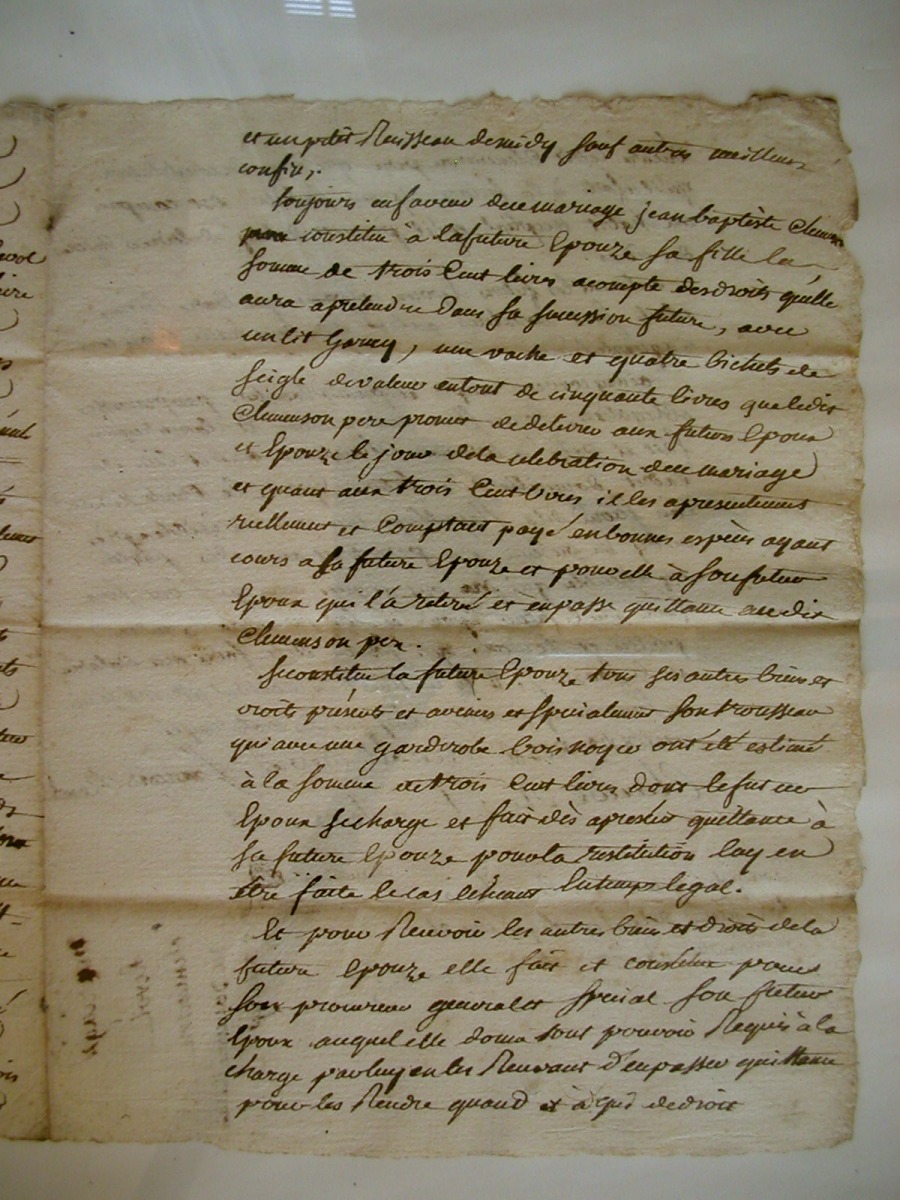 et un petit Ruisseau de midy sauf autres meilleurs
confins.
toujours en faveur de ce mariage jean baptiste Clemenson
pere constitue à la future Epouze sa fille la
somme de trois Cent livres acompte des droits qu'elle
aura a pretendre dans sa sucession future, avec
un lit Garny, une vache et quatre bichets de
seigle de valeur en tout de cinquante livres que ledit
Clemenson pere promet de delivrer aux futurs Epoux
et Epouze le jour de la celebration de ce mariage
et quant aux trois Cent livres il les a presentement
réellement et Comptant payé en bonnes espèces ayant
cours a sa future Epouze et pour elle à son futur
Epoux qui l'a retiré et en passe quittance audit
Clemenson pere.
se constitue la future Epouze tous ses autres biens et
droits présents et avenirs et spécialement son trousseau
qui avec une garderobe bois noyer ont été estimé
à la somme de trois Cent livres dont le futur
Epoux se charge et fait dès apresent quittance à
sa future Epouze pour la restitution luy en
être faite le cas échéant en temps legal.
Et pour Recevoir les autres biens et droits de la
future Epouze elle fait et constitue pour
son procureur general et spécial son futur
Epoux auquel elle donne tout pouvoir Requis à la
charge par luy en les Recevant d'en passer quittance
pour les Rendre quand et à qui de droit